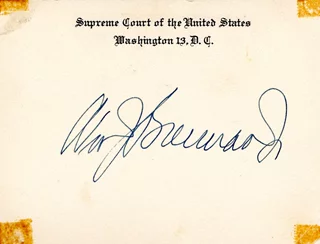 Supreme Court of the United States
Washington 13, D. C.
Wm J Brennan Jr